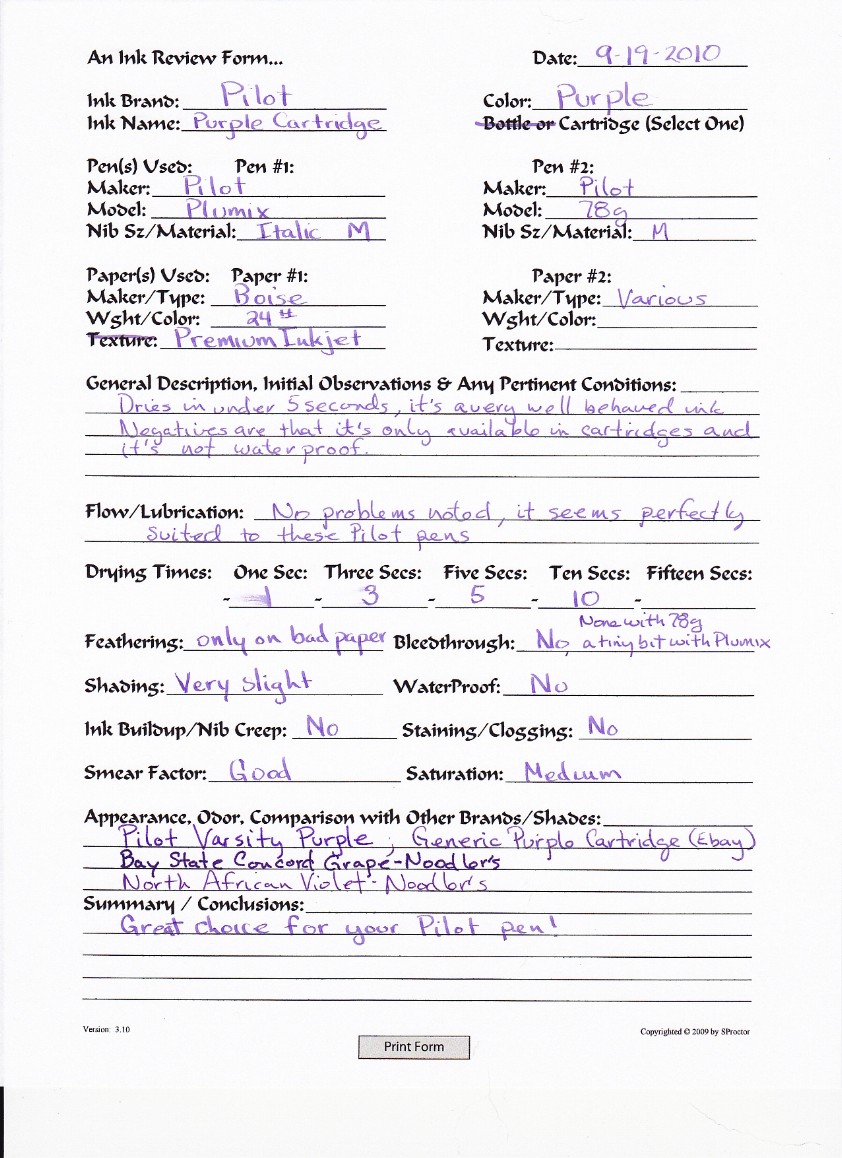 An Ink Review Form... Date: 9-19-2010
Ink Brand: Pilot Color: Purple
Ink Name: Purple Cartridge Bottle or Cartridge (Select One)
Pen(s) Used: Pen #1: Pen #2:
Maker: Pilot Maker: Pilot
Model: Plumix Model: 78g
Nib Sz/Material: Italic M Nib Sz/Material: M
Paper(s) Used: Paper #1: Paper #2:
Maker/Type: Boise Maker/Type: Various
Wght/Color: 24 # Wght/Color:
Texture: Premium Inkjet Texture:
General Description, Initial Observations & Any Pertinent Conditions:
Dries in under 5 seconds, it's a very well behaved ink
Negatives are that it's only available in cartridges and
it's not waterproof.
Flow/Lubrication: No problems noted, it seems perfectly
suited to these Pilot pens
Drying Times: One Sec: Three Secs: Five Secs: Ten Secs: Fifteen Secs:
- 1 - 3 - 5 - 10 -
None with 78g
Feathering: only on bad paper Bleedthrough: No, a tiny bit with Plumix
Shading: Very slight WaterProof: No
Ink Buildup/Nib Creep: No Staining/Clogging: No
Smear Factor: Good Saturation: Medium
Appearance, Odor, Comparison with Other Brands/Shades:
Pilot Varsity Purple, Generic Purple Cartridge (Ebay)
Bay State Concord Grape-Noodler's
North African Violet-Noodler's
Summary / Conclusions:
Great choice for your Pilot pen!
Version: 3.10 Copyrighted © 2009 by SProctor
Print Form